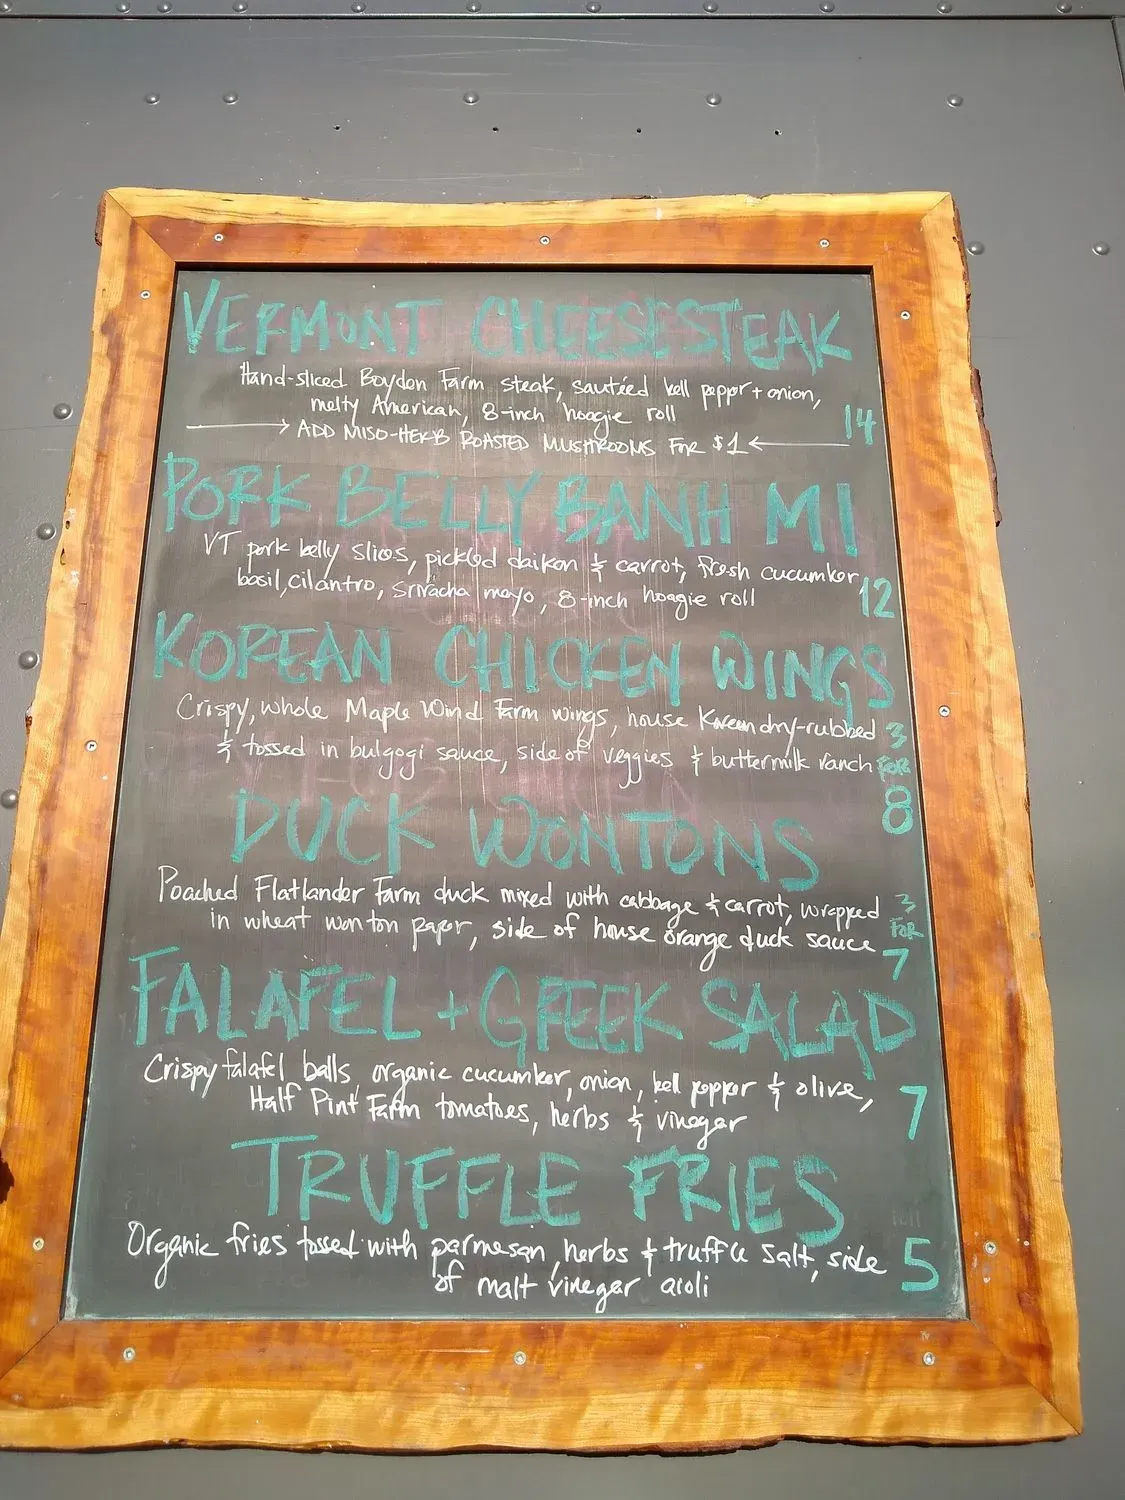 VERMONT CHEESESTEAK
Hand-sliced Boyden Farm steak, sautéed bell pepper + onion,
melty American, 8-inch hoagie roll
14
→ ADD MISO-HERB ROASTED MUSHROOMS FOR $1 ←
PORK BELLY BANH MI
VT pork belly slices, pickled daikon & carrot, fresh cucumber,
basil, cilantro, sriracha mayo, 8-inch hoagie roll
12
KOREAN CHICKEN WINGS
Crispy, whole Maple Wind Farm wings, house Korean dry-rubbed
& tossed in bulgogi sauce, side of veggies & buttermilk ranch
3
FOR
8
DUCK WONTONS
Poached Flatlander Farm duck mixed with cabbage & carrot, wrapped
in wheat wonton paper, side of house orange duck sauce
3
FOR
7
FALAFEL + GREEK SALAD
Crispy falafel balls organic cucumber, onion, bell pepper & olive,
Half Pint Farm tomatoes, herbs & vinegar
7
TRUFFLE FRIES
Organic fries tossed with parmesan, herbs & truffle salt, side
of malt vinegar aioli
5